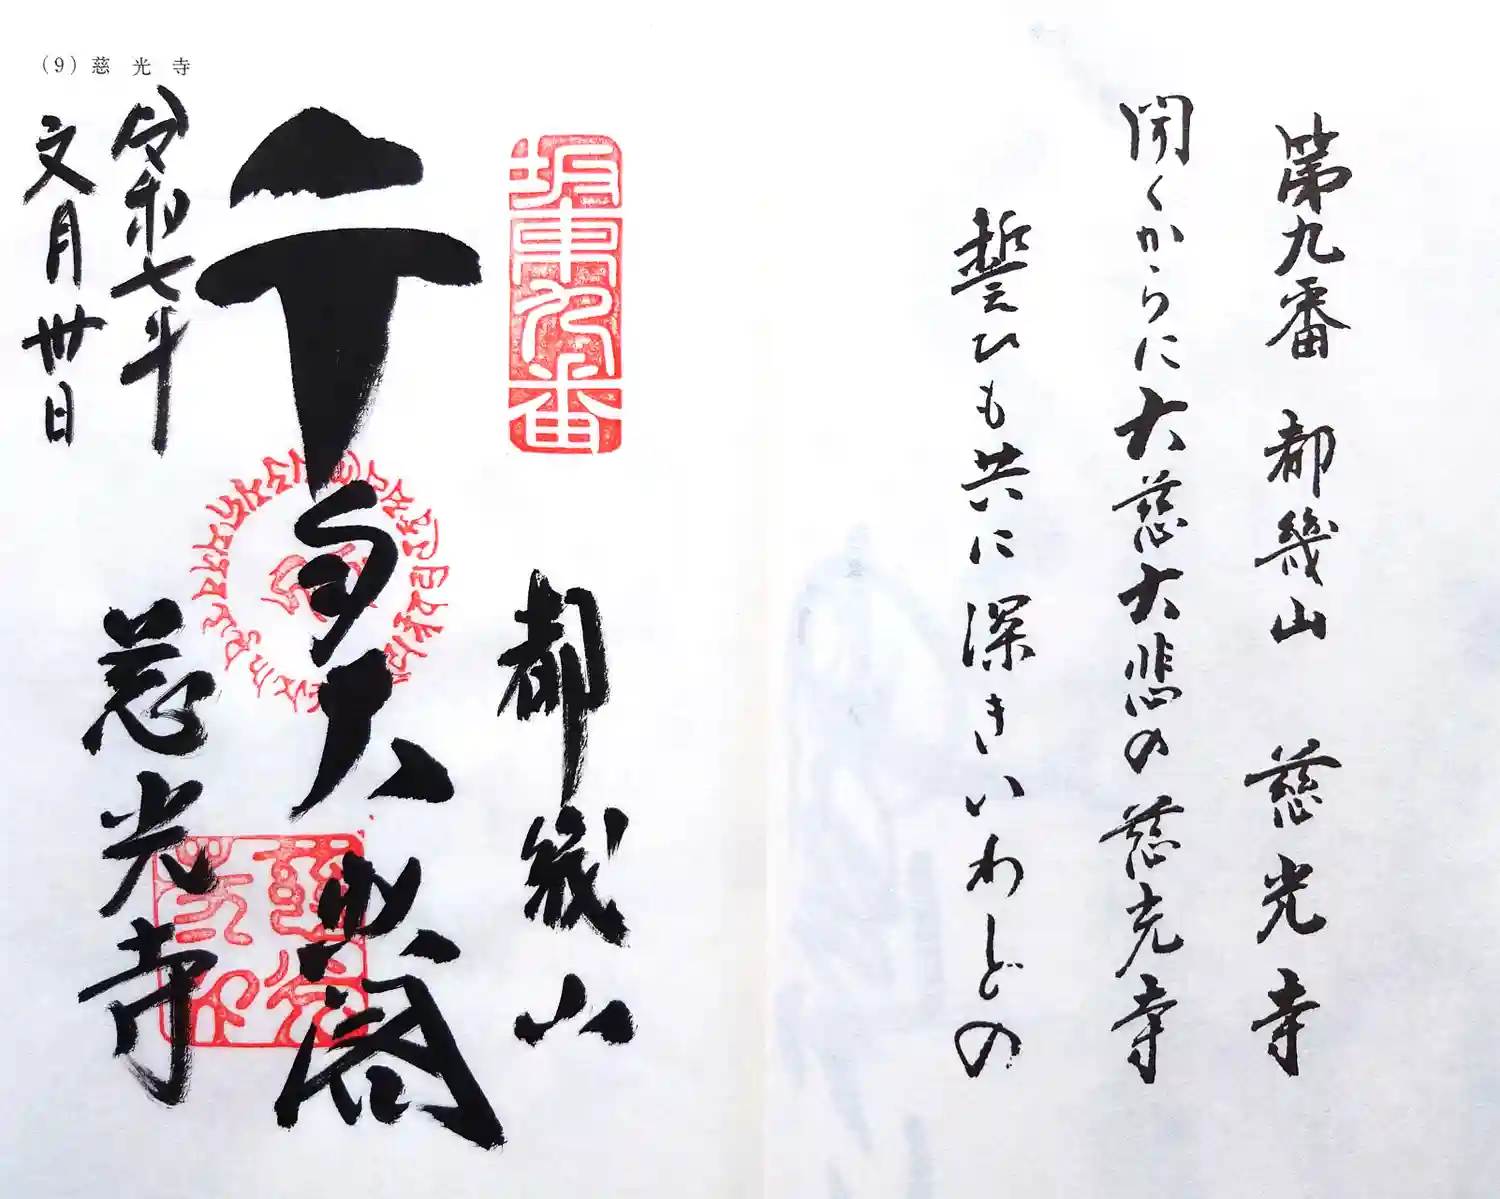 第九番 都幾山 慈光寺
聞くからに大慈大悲の慈光寺
誓ひも共に深きいわとの
坂東九番
都幾山
千手大悲閣
慈光寺
令和七年
文月卅日
(9) 慈光寺